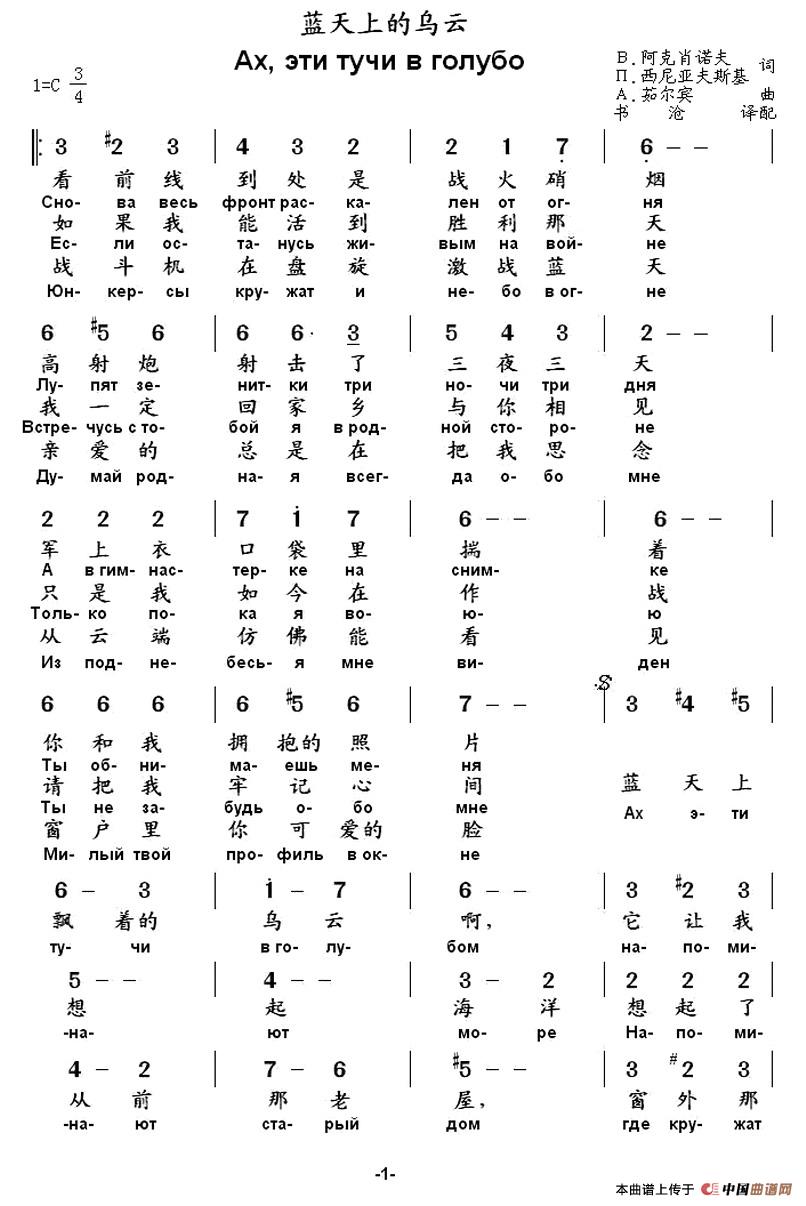 蓝天上的乌云
Ах, эти тучи в голубо
1=C 3/4
В.阿克肖诺夫 词
П.西尼亚夫斯基
А.茹尔宾 曲
书沧 译配
3 #2 3 | 4 3 2 | 2 1 7 | 6 - - |
看前线 到处是 战火硝 烟
Сно- ва весь фронт рас- ка- лен от ог- ня
如果我 能活到 胜利那 天
Ес- ли ос- та- нусь жи- вым на вой- не
战斗机 在盘旋 激战蓝 天
Юн- кер- сы кру- жат и не- бо в ог- не
6 #5 6 | 6 6· 3 | 5 4 3 | 2 - - |
高射炮 射击了 三夜三 天
Лу- пят зе- нит- ки три но- чи три дня
我一定 回家乡 与你相 见
Встре- чусь с то- бой я в род- ной сто- ро- не
亲爱的 总是在 把我思 念
Ду- май род- на- я всег- да о- бо мне
2 2 2 | 7 1 7 | 6 - - | 6 - - |
军上衣 口袋里 揣 着
А в гим- нас- тер- ке на сним- ке
只是我 如今在 作 战
Толь- ко по- ка я во- ю- ю
从云端 仿佛能 看 见
Из под- не- бесь- я мне ви- ден
6 6 6 | 6 #5 6 | 7 - - | 3 #4 #5 |
你和我 拥抱的照 片
Ты об- ни- ма- ешь ме- ня
请把我 牢记心 间 蓝天上
Ты не за- будь о- бо мне Ах э- ти
窗户里 你可爱的 脸
Ми- лый твой про- филь в ок- не
6 - 3 | 1 - 7 | 6 - - | 3 #2 3 |
飘着的 乌云 啊, 它让我
ту- чи в го- лу- бом на- по- ми-
5 - - | 4 - - | 3 - 2 | 2 2 2 |
想 起 海洋 想起了
-на- ют мо- ре На- по- ми-
4 - 2 | 7 - 6 | #5 - - | 3 #2 3 |
从前 那老 屋, 窗外那
-на- ют ста- рый дом где кру- жат
-1-
本曲谱上传于 中国曲谱网